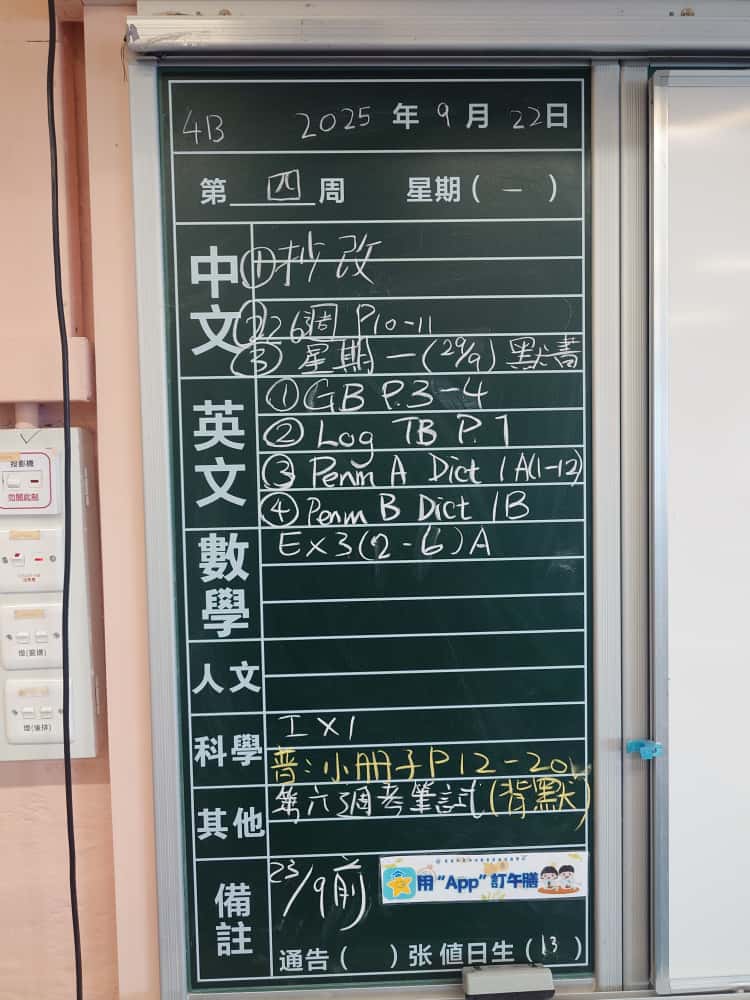 4B 2025 年 9 月 22日
第 四 周 星期( 一 )
中文
①抄改
②26週 P10-11
③ 星期一(29/9) 默書
英文
①GB P.3-4
② Log TB P.7
③ Penm A Dict 1A(1-12)
④ Penm B Dict 1B
數學
Ex3(2-6)A
人文
科學
I X 1
普:小冊子P12-20
其他
第六週考筆試(背默)
備註
23/9前
用“App”訂午膳
通告( )张 值日生( 13 )
投影機
如開此制
燈(窗邊)
燈(後排)